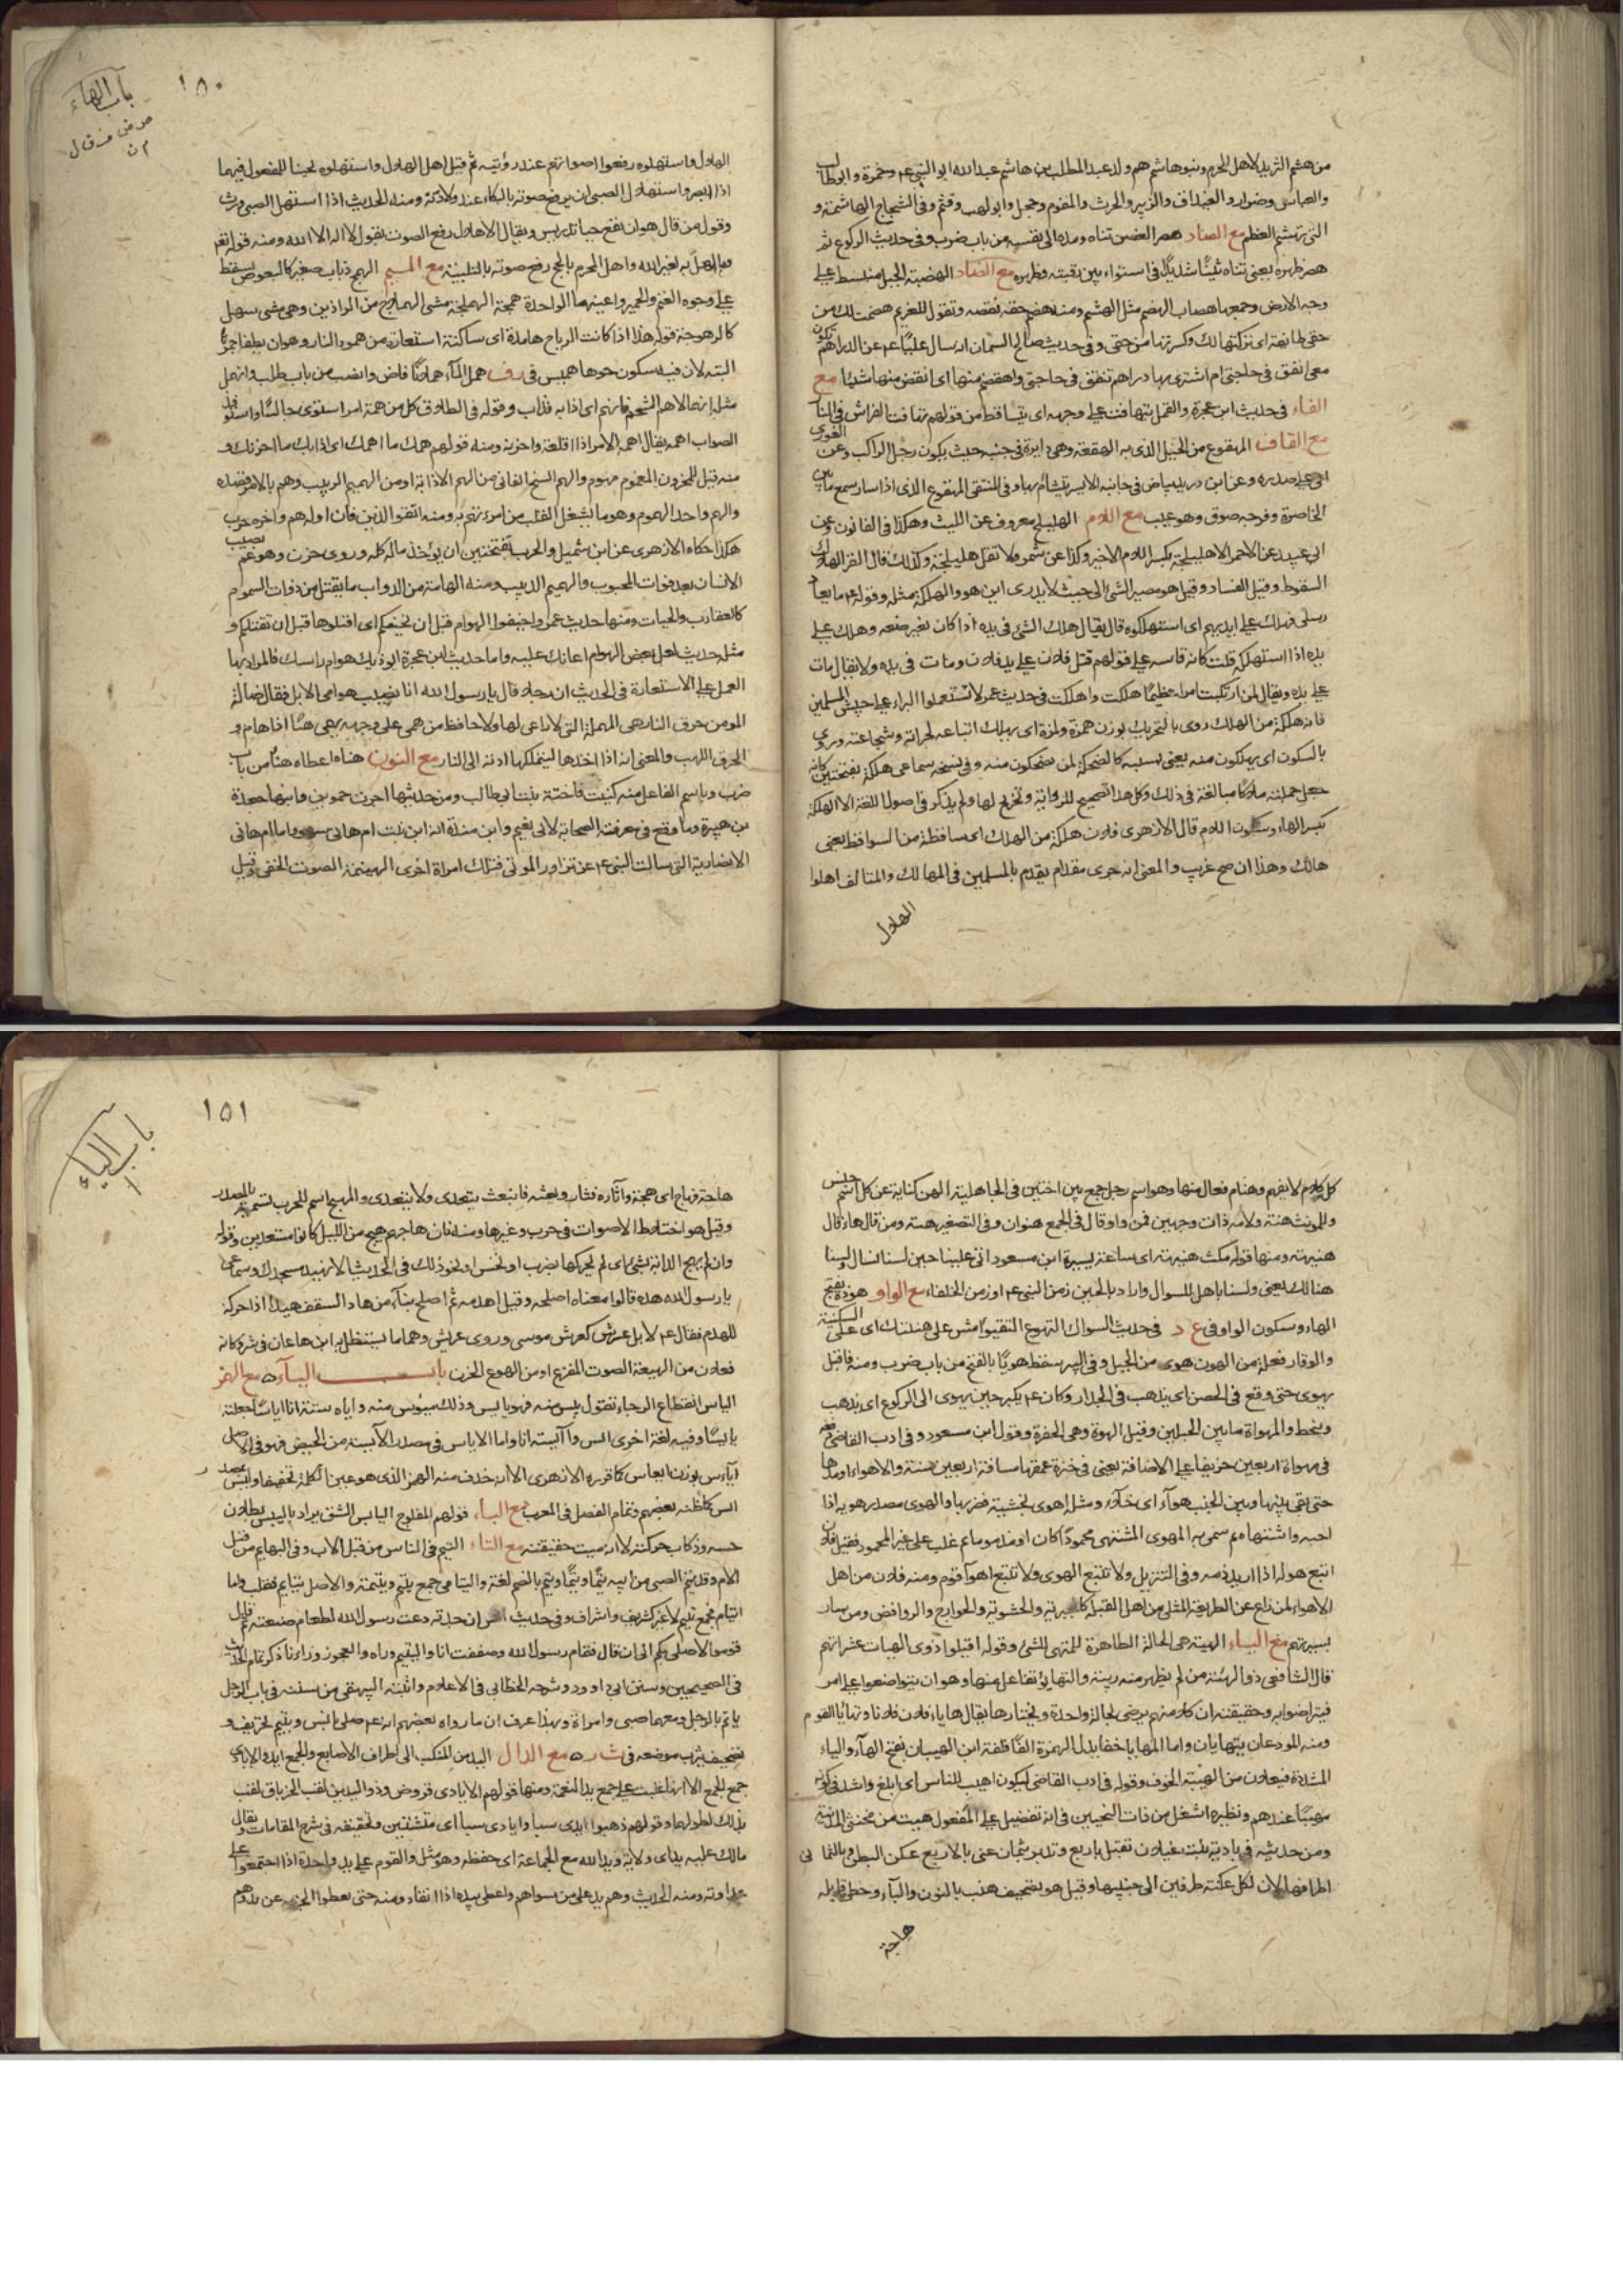 من هشم الثريد لاهل الحرم وبنو هاشم هم ولد عبد المطلب بن هاشم عبد الله ابو النبي عم وحمزة وابو طالب
والعباس وضرار والغيداق والزبير والحرث والمقوم وحجل وابو لهب وقثم وفى الشجاج الهاشمة و
التى تهشم العظم مع الصاد هصر الغصن ثناه ومده الى نفسه من باب ضرب وفى حديث الركوع ثم
هصر ظهره يعنى ثناه ثنيًا شديدًا فى استواء بين رقبته وظهره مع الضاد الهضبة الجبل منبسط على
وجه الارض وجمعها هضاب الهضم مثل الهشم ومنه هضم حقه نقصه وتقول للغريم هضمت لك من
حقى طائفة اى تركتها لك وكسرتها من حقى وفى حديث صالح السمان انه سال عليًا عم عن الدراهم تكون
معى انفق فى حاجتى ام اشترى بها دراهم تنفق فى حاجتى واهضم منها اى انقص منها شيئا مع
الفاء فى حديث ابن عجرة والقمل تتهافت على وجهه اى يتساقط من قولهم تهافت الفراش فى النار
مع القاف المهقوع من الخيل الذى به الهقعة وهى دايرة فى جنبه حيث يكون رجل الراكب وعن الغورى
هى على صدره وعن ابن دريد بياض فى جانبه الايسر يتشام بها وفى المنتقى المهقوع الذى اذا سار سمع ما بين
الخاصرة وفرجه صوق وهو عيب مع اللام الهليلج معروف عن الليث وهكذا فى القانون وعن
ابى عبيد عن الاحمر الاهليلجة بكسر اللام الاخيرة وكذا عن شمر ولا تقل هليلجة وكذلك قال الفرا الهلاك
السقوط وقيل الفساد وقيل هو مصير الشئ الى حيث لا يدرى اين هو والمهلكة مثله وقوله عم
فهلك على ايديهم اى استهلكوه قال يقال هلك الشئ فى يده اذا كان بغير صنعه وهلك على
يده اذا استهلكه قلت كانه قاسه على قولهم قتل فلان على يد فلان ومات فى يده ولا يقال مات
على يده ويقال لمن ارتكب امرا عظيمًا هلكت واهلكت فى حديث عمر لا تستعملوا البراء على جيش المسلمين
فانه هلكة من الهلك روى بالتحريك بوزن همزة ولمزة اى يهلك اتباعه لجراته وشجاعته وروى
بالسكون اى يهلكون منه يعنى بسببه كالضحكة لمن يضحكون منه وفى نسخه سماعى هلكة بفتحتين كانه
جعل جملته هلاكا مبالغة فى ذلك وكل هذا تصحيح للرواية وتخريج لها ولم يذكر فى اصول اللغة الا الهلكة
بكسر الهاء وسكون اللام قال الازهرى فلان هلكة من الهلك اى ساقطة من السواقط يعنى
هالك وهذا ان صح غريب والمعنى انه جرى مقدام يقدم بالمسلمين فى المهالك والمتالف اهلوا
الهلال
باب الهاء
١٥٠
الهلال واستهلوه رفعوا اصواتهم عند رؤيته ثم قيل اهل الهلال واستهلوه لحينا للمفعول فيهما
اذا ابصر واستهلال الصبى ان يرفع صوته بالبكاء عند ولادته ومنه الحديث اذا استهل الصبى ورث
وقول من قال هو ان يقع حيا تدريس ويقال الاهلال رفع الصوت بقول لا اله الا الله ومنه قوله تعم
وما اهل به لغير الله واهل المحرم بالحج رفع صوته بالتلبية مع الميم الهمج ذباب صغير كالبعوض يسقط
على وجوه الغنم والحمير واعينهما الواحدة همجة الهملجة مشى الهملاج من البراذين وهى مشى سهل
كالرهوجة قوله هذا اذا كانت الرياح هامدة اى ساكنة استعارة من همود النار وهو ان يطفا جمرها
البتة لان فيه سكون حرها هميس فى رف همل الماء هملانا فاض وانصب من باب طلب وانهمل
مثله انهم الاهم الشحم فانهم اى اذابه فذاب وقوله فى الطلاق كل من همه امر استوى جالسًا واستوفز
الصواب اهمه يقال اهمه الامر اذا اقلقه واحزنه ومنه قولهم همك ما اهمك اى اذابك ما احزنك و
منه قيل للمحزون المغموم مهموم والهم الشيخ الفانى من الهم الاذابة او من الهميم الدبيب وهم بالامر قصده
والهم واحد الهموم وهو ما يشغل القلب من امر يهم به ومنه اتقوا الدين فان اوله هم واخره حرب
هكذا حكاه الازهرى عن ابن شميل والحرب بفتحتين ان يؤخذ ماله كله وروى حزن وهو غم يصيب
الانسان بعد فوات المحبوب والهميم الدبيب ومنه الهامة من الدواب ما يقتل من ذوات السموم
كالعقارب والحيات ومنها حديث عمر واخيفوا الهوام قبل ان تخيفكم اى اقتلوها قبل ان تقتلكم و
مثله حديث لعل بعض الهوام اعانك عليه واما حديث ابن عجرة ايؤذيك هوام راسك فالمراد بها
القمل على الاستعارة فى الحديث ان رجلا قال يا رسول الله انا نصيب هوامى الابل فقال ضالة
المومن حرق النار هى المهملة التى لا راعى لها ولا حافظ من همى على وجهه يهمى هميا اذا هام و
الحرق اللهب والمعنى انه اذا اخذها ليتملكها ادته الى النار مع النون هناه اعطاه هنأ من باب
ضرب وباسم الفاعل منه كنيت فاختة بنت ابى طالب ومن حديثها اجرت حموين وابنها جعدة
بن هبيرة وما وقع فى معرفة الصحابة لابى نعيم وابن مندة انه ابن بنت ام هانى سهو واما ام هانى
الانصارية التى سالت النبى عم عن تزاور الموتى فتلك امراة اخرى الهينمة الصوت الخفى وقيل
كل كلام لا يفهم وهنام فعال منها وهو اسم رجل جمع بين اختين فى الجاهلية الهن كناية عن كل اسم جنس
وللمونث هنة ولامه ذات وجهين فمن واو قال فى الجمع هنوات وفى التصغير هنية ومن قال هاء قال
هنيهة ومنها قوله مكث هنيهة اى ساعة يسيرة ابن مسعود اتى علينا حين لسنا نسال ولسنا
هنالك يعنى ولسنا باهل للسوال واراد بالحين زمن النبى عم او زمن الخلفاء مع الواو هوذة بفتح
الهاء وسكون الواو فى ع د فى حديث السواك التهوع التقيوا امش على هينتك اى على السكينة
والوقار فعلة من الهون هوى من الجبل وفى البير سقط هويًا بالفتح من باب ضرب ومنه فاقبل
يهوى حتى وقع فى الحصن اى يذهب فى الجدار وكان عم يكبر حين يهوى الى الركوع اى يذهب
وينحط والمهواة ما بين الجبلين وقيل الهوة وهى الحفرة وقول ابن مسعود وفى ادب القاضى دفعه
فى مهواة اربعين خريفا على الاضافة يعنى فى حفرة عمقها مسافة اربعين سنة والاهواء
حتى بقى بينها وبين الجنب هوآء اى خلاء ومثله اهوى بخشبته فضربها والهوى مصدر هويه اذا
احبه واشتهاه ثم سمى به المهوى المشتهى محمودًا كان او مذموما ثم غلب على غير المحمود فقيل فلان
اتبع هواه اذا اريد ذمه وفى التنزيل ولا تتبع الهوى ولا تتبع اهوآ قوم ومنه فلان من اهل
الاهواء لمن زاغ عن الطريقة المثلى من اهل القبلة كالجبرية والحشوية والخوارج والروافض ومن سار
بسيرتهم مع الياء الهيئة هى الحالة الظاهرة للمتهى للشئ وقوله اقيلوا ذوى الهيات عثراتهم
قال الشافعى ذو الهيئة من لم يظهر منه ريبة والتهايؤ تفاعل منها وهو ان يتواضعوا على امر
فيتراضوا به وحقيقته ان كلا منهم يرضى بحالة واحدة ويختارها يقال هايا فلان فلانا وتهايا القوم
ومنه المودعان يتهايان واما المهاياة بابدال الهمزة الفًا فلغة ابن الهيبان بفتح الهآء والياء
المشددة فيعلان من الهيبة الخوف وقوله فى ادب القاضى ليكون اهيب للناس اى ابلغ واشد فى كونه
مهيبًا عندهم ونظيره اشغل من ذات النحيين فى انه تفضيل على المفعول هيت من مخنثى المدينة
ومن حديثه فى بادية بنت غيلان تقبل باربع وتدبر بثمان عنى بالاربع عكن البطن وبالثمانى
اطرافها لان لكل عكنة طرفين الى جنبيها وقيل هو تصحيف هنب بالنون والباء وخطئ قايله
هاجة
باب الياء
١٥١
هاجه فهاج اى هيجه واثاره فثار وبعثه فانبعث يتعدى ولا يتعدى والهيج اسم للحرب تسمية بالمصدر
وقيل هو اختلاط الاصوات فى حرب وغيرها ومنه فان هاجهم هيج من الليل كانوا مستعدين وقوله
وان لم يهج الدابة بشئ اى لم يحركها بضرب او نخس او نحو ذلك فى الحديث الا نهيد مسجدك وسماعى
يا رسول الله هده قالوا معناه اصلحه وقيل اهدمه ثم اصلح بناءه من هاد السقف هيدًا اذا حركه
للهدم فقال عم لا بل عرش كعرش موسى وروى عريش وهما ما يستظل به ابن هاعان فى شروكانه
فعلان من الهيعة الصوت المفزع او من الهوع الحزن باب اليآء مع الهمز
الياس انقطاع الرجاء تقول يئس منه فهو يايس وذلك ميوس منه وايأسته انا اياسًا جعلته
يايسًا وفيه لغة اخرى ايس وآيسته انا واما الاياس فى مصدر الآيسة من الحيض فهو فى الاصل
ايآس بوزن ايعاس كما قرره الازهرى الا انه حذف منه الهمز الذى هو عين الكلمة تخفيفا وليس بمصدر
ايس كما ظنه بعضهم وتمام الفصل فى المعرب مع الباء قولهم المفلوج اليابس الشق يراد باليبس بطلان
حسه وذهاب حركته لا انه ميت حقيقة مع التاء اليتم فى الناس من قبل الاب وفى البهايم من قبل
الام وقد يتم الصبى من ابيه يتمًا ويتمًا ويتم بالضم لغة واليتامى جمع يتيم ويتيمة والاصل يتايم فقلب واما
ايتام فجمع يتيم لا غير كشريف واشراف وفى حديث انس ان جدته دعت رسول الله لطعام صنعته ثم قال
قوموا لاصلى بكم الى ان قال فقام رسول الله وصففت انا واليتيم وراه والعجوز وراءنا ذكر تمام الحديث
فى الصحيحين وسنن ابى داود وشرحه الخطابى فى الاعلام واثبته البيهقى من سننه فى باب الرجل
ياتم بالرجل ومعهما صبى وامراة وبهذا عرف ان ما رواه بعضهم انه عم صلى بانس ويتيم تحريف و
تصحيف يثرب موضعه فى ث ر مع الدال اليد من المنكب الى اطراف الاصابع والجمع ايد والايادى
جمع الجمع الا انها غلبت على جمع يد النعمة ومنها قولهم الايادى قروض وذو اليدين لقب الخرباق لقب
بذلك لطولهما وقولهم ذهبوا ايدى سبا وايادى سبا اى متشتتين وتحقيقه فى شرح المقامات ويقال
مالك عليه يد اى ولاية ويد الله مع الجماعة اى حفظه وهو مثل والقوم على يد واحدة اذا اجتمعوا على
عداوته ومنه الحديث وهم يد على من سواهم واعطى بيده اذا انقاد ومنه حتى يعطوا الجزية عن يد وهم